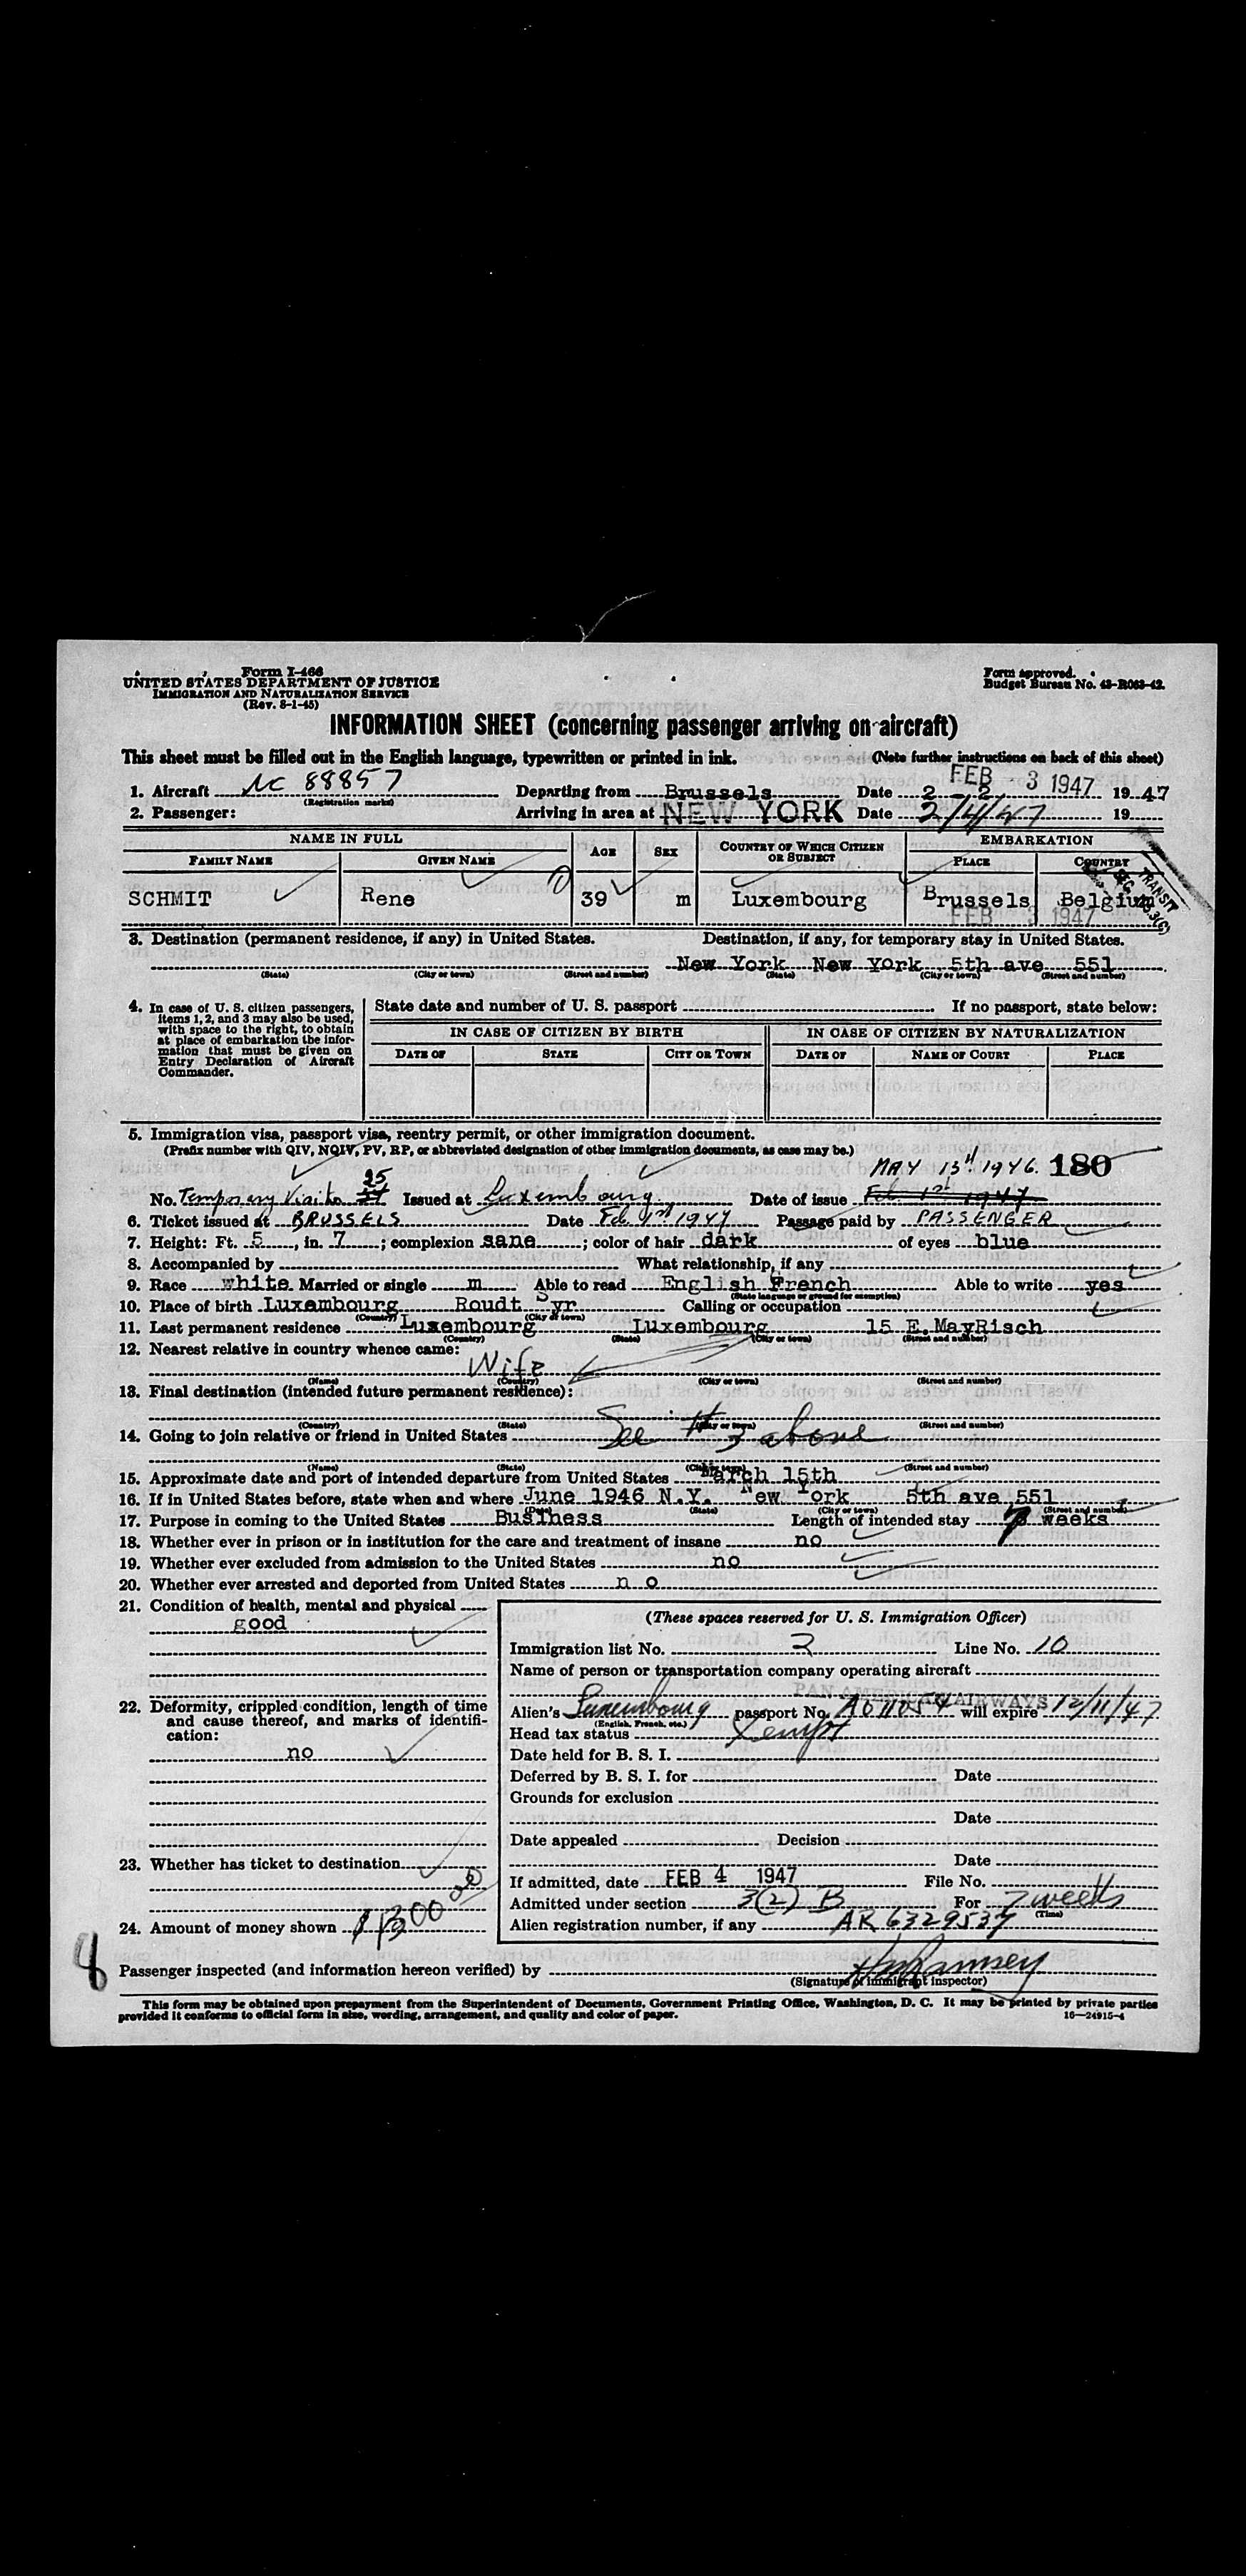 Form I-466
UNITED STATES DEPARTMENT OF JUSTICE
IMMIGRATION AND NATURALIZATION SERVICE
(Rev. 8-1-45)
Form approved.
Budget Bureau No. 43-R063-42.
INFORMATION SHEET (concerning passenger arriving on aircraft)
This sheet must be filled out in the English language, typewritten or printed in ink. (Note further instructions on back of this sheet)
FEB - 3 1947
1. Aircraft NC 88857 Departing from Brussels Date 2 2 1947
(Registration marks)
2. Passenger: Arriving in area at NEW YORK Date 2/4/47 19
NAME IN FULL AGE SEX COUNTRY OF WHICH CITIZEN OR SUBJECT EMBARKATION
FAMILY NAME GIVEN NAME PLACE COUNTRY
TRANSIT
SCHMIT Rene 39 m Luxembourg Brussels Belgium
FEB 3 1947
3. Destination (permanent residence, if any) in United States. Destination, if any, for temporary stay in United States.
New York New York 5th ave 551
(State) (City or town) (Street and number) (State) (City or town) (Street and number)
4. In case of U. S. citizen passengers, items 1, 2, and 3 may also be used, with space to the right, to obtain at place of embarkation the information that must be given on Entry Declaration of Aircraft Commander.
State date and number of U. S. passport If no passport, state below:
IN CASE OF CITIZEN BY BIRTH IN CASE OF CITIZEN BY NATURALIZATION
DATE OF STATE CITY OR TOWN DATE OF NAME OF COURT PLACE
5. Immigration visa, passport visa, reentry permit, or other immigration document.
(Prefix number with QIV, NQIV, PV, RP, or abbreviated designation of other immigration documents, as case may be.)
25 MAY 13th 1946. 180
No. Temporary Visitor Issued at Luxembourg Date of issue Feb 1st 1947
6. Ticket issued at BRUSSELS Date Feb 1st 1947 Passage paid by PASSENGER
7. Height: Ft. 5, in. 7; complexion sane; color of hair dark of eyes blue
8. Accompanied by What relationship, if any
9. Race white Married or single m Able to read English French Able to write yes
(State language or ground for exemption)
10. Place of birth Luxembourg Roudt Syr Calling or occupation
(Country) (City or town)
11. Last permanent residence Luxembourg Luxembourg 15 E.MayRisch
(Country) (State) (City or town) (Street and number)
12. Nearest relative in country whence came:
Wife
(Name) (Country) (City or town) (Street and number)
13. Final destination (intended future permanent residence):
(Country) (State) (City or town) (Street and number)
14. Going to join relative or friend in United States See # 3 above
(Name) (State) (City or town) (Street and number)
15. Approximate date and port of intended departure from United States March 15th
16. If in United States before, state when and where June 1946 N.Y. New York 5th ave 551
(Date) (State) (City or town) (Street and number)
17. Purpose in coming to the United States Business Length of intended stay 7 weeks
18. Whether ever in prison or in institution for the care and treatment of insane no
19. Whether ever excluded from admission to the United States no
20. Whether ever arrested and deported from United States no
21. Condition of health, mental and physical
good
22. Deformity, crippled condition, length of time and cause thereof, and marks of identification:
no
23. Whether has ticket to destination
24. Amount of money shown $1300.00
(These spaces reserved for U. S. Immigration Officer)
Immigration list No. 2 Line No. 10
Name of person or transportation company operating aircraft
PAN AMERICAN AIRWAYS
Alien's Luxembourg passport No. A 011054 will expire 12/11/47
(English, French, etc.)
Head tax status Exempt
Date held for B. S. I.
Deferred by B. S. I. for Date
Grounds for exclusion
Date
Date appealed Decision
Date
If admitted, date FEB 4 1947 File No.
Admitted under section 3(2) B For 7 weeks
(Time)
Alien registration number, if any AR 6329537
8
Passenger inspected (and information hereon verified) by
(Signature of immigrant inspector)
This form may be obtained upon prepayment from the Superintendent of Documents, Government Printing Office, Washington, D. C. It may be printed by private parties
provided it conforms to official form in size, wording, arrangement, and quality and color of paper. 16—24915-4